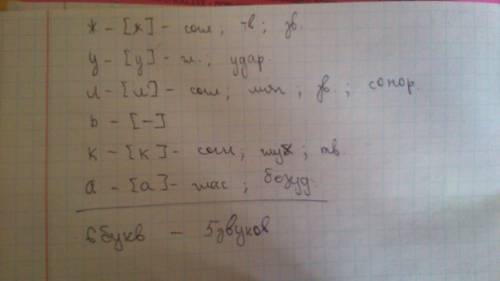 ж - [ж] - согл ; тв ; зв.
у - [у] - гл. ; удар.
л - [л] - согл ; мяг ; зв. ; сонор.
ь - [-]
к - [к] - согл ; глух ; тв.
а - [а] - глас ; безуд.
6 букв - 5 звуков